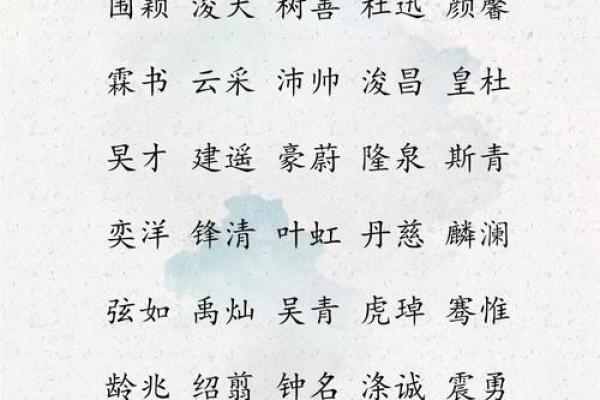 围颖 浚天 树善 杜迅 颜馨
霖书 云采 沛帅 浚昌 皇杜
旲才 建遥 豪蔚 隆泉 斯青
奕洋 锋清 叶虹 丹慈 麟澜
弦如 禹灿 吴青 虎琸 骞惟
龄兆 绍翦 钟名 涤诚 震勇